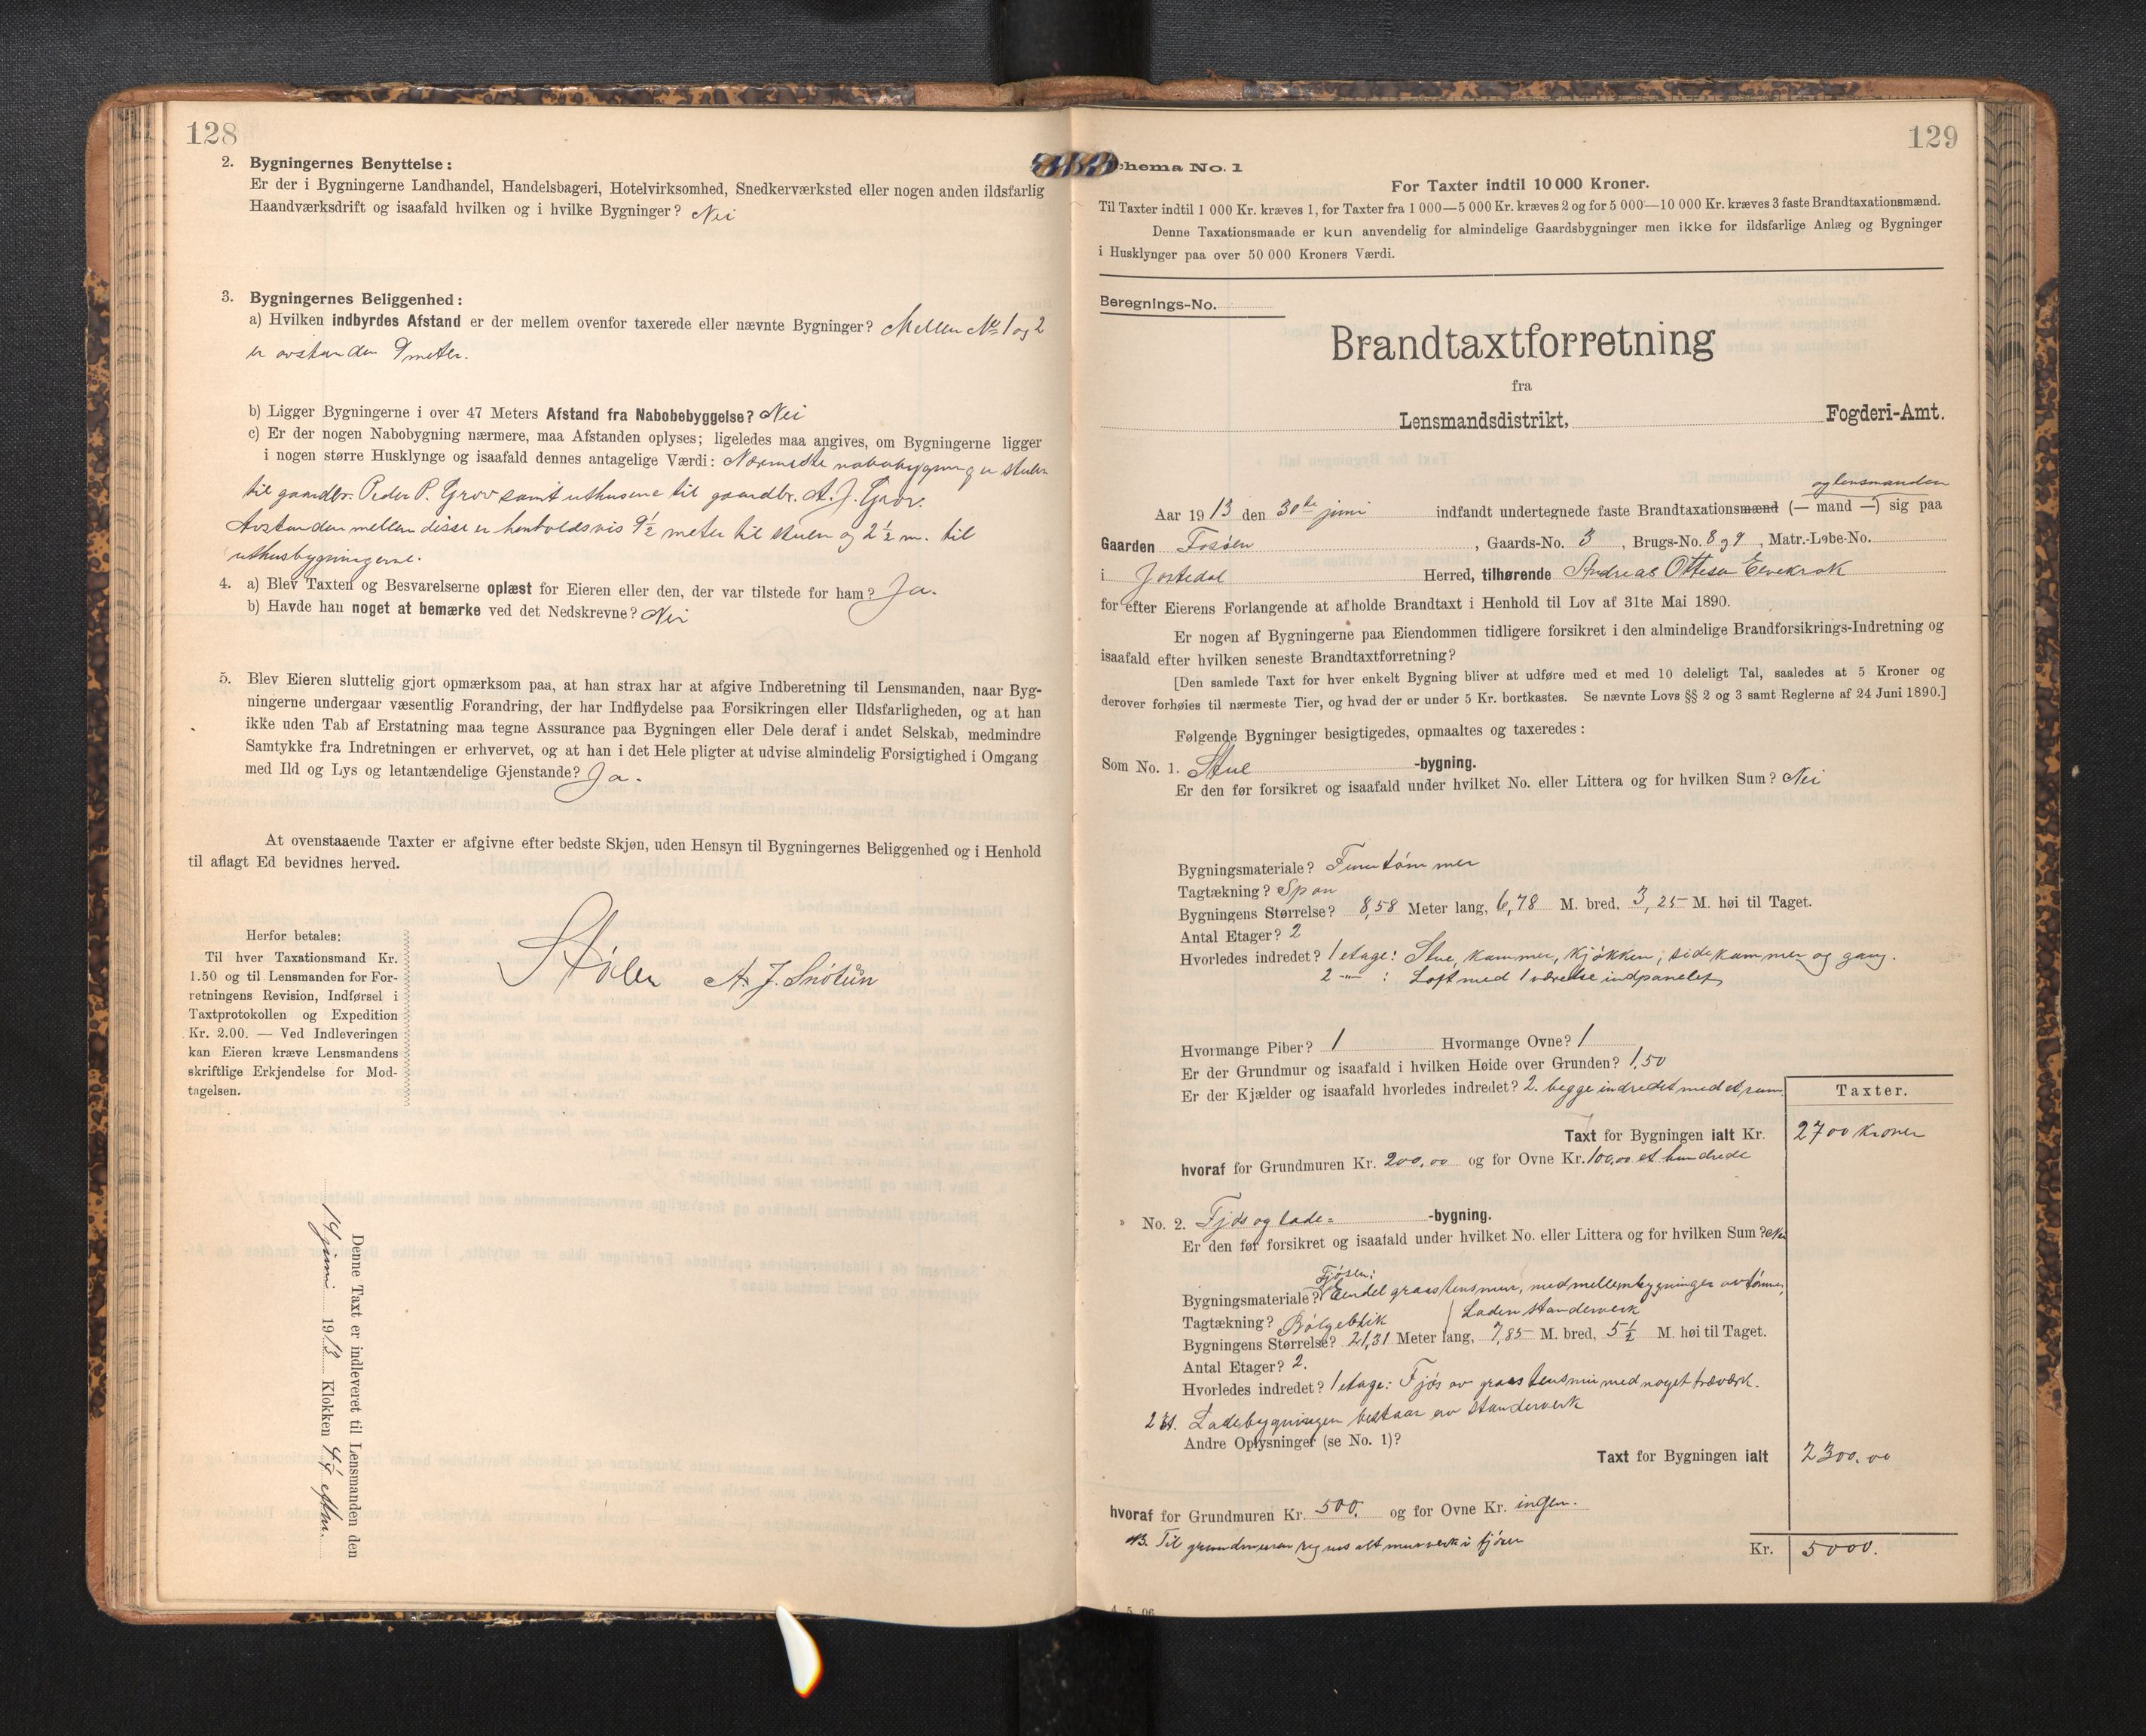 128
2. Bygningernes Benyttelse:
Er der i Bygningerne Landhandel, Handelsbageri, Hotelvirksomhed, Snedkerværksted eller nogen anden ildsfarlig
Haandværksdrift og isaafald hvilken og i hvilke Bygninger? Nei
3. Bygningernes Beliggenhed:
a) Hvilken indbyrdes Afstand er der mellem ovenfor taxerede eller nævnte Bygninger? Mellem No 1 og 2
er avstanden 9 meter.
b) Ligger Bygningerne i over 47 Meters Afstand fra Nabobebyggelse? Nei
c) Er der nogen Nabobygning nærmere, maa Afstanden oplyses; ligeledes maa angives, om Bygningerne ligger
i nogen større Husklynge og isaafald dennes antagelige Værdi: Nærmeste nabobygning er stuen
til gaardbr. Peder P. Grov samt uthusene til gaardbr. A. J. Grov.
Avstanden mellem disse er henholdsvis 9½ meter til stuen og 2½ m. til
uthusbygningerne.
4. a) Blev Taxten og Besvarelserne oplæst for Eieren eller den, der var tilstede for ham? Ja.
b) Havde han noget at bemærke ved det Nedskrevne? Nei
5. Blev Eieren sluttelig gjort opmærksom paa, at han strax har at afgive Indberetning til Lensmanden, naar Byg-
ningerne undergaar væsentlig Forandring, der har Indflydelse paa Forsikringen eller Ildsfarligheden, og at han
ikke uden Tab af Erstatning maa tegne Assurance paa Bygningen eller Dele deraf i andet Selskab, medmindre
Samtykke fra Indretningen er erhvervet, og at han i det Hele pligter at udvise almindelig Forsigtighed i Omgang
med Ild og Lys og letantændelige Gjenstande? Ja.
At ovenstaaende Taxter er afgivne efter bedste Skjøn, uden Hensyn til Bygningernes Beliggenhed og i Henhold
til aflagt Ed bevidnes herved.
Støler A. J. Snøtun
Herfor betales:
Til hver Taxationsmand Kr.
1.50 og til Lensmanden for For-
retningens Revision, Indførsel i
Taxtprotokollen og Expedition
Kr. 2.00. — Ved Indleveringen
kan Eieren kræve Lensmandens
skriftlige Erkjendelse for Mod-
tagelsen.
Denne Taxt er indleveret til Lensmanden den
juni 1913 Klokken eftm.
129
chema No. 1
For Taxter indtil 10 000 Kroner.
Til Taxter indtil 1 000 Kr. kræves 1, for Taxter fra 1 000—5 000 Kr. kræves 2 og for 5 000—10 000 Kr. kræves 3 faste Brandtaxationsmænd.
Denne Taxationsmaade er kun anvendelig for almindelige Gaardsbygninger men ikke for ildsfarlige Anlæg og Bygninger
i Husklynger paa over 50 000 Kroners Værdi.
Beregnings-No.
Brandtaxtforretning
fra
Lensmandsdistrikt, Fogderi-Amt.
og lensmanden
Aar 1913 den 30te juni indfandt undertegnede faste Brandtaxationsmænd (— mand —) sig paa
Gaarden Fosøen, Gaards-No. 3, Brugs-No. 8 og 9, Matr.-Løbe-No.
i Jostedal Herred, tilhørende Andreas Ottesen Elvekrok
for efter Eierens Forlangende at afholde Brandtaxt i Henhold til Lov af 31te Mai 1890.
Er nogen af Bygningerne paa Eiendommen tidligere forsikret i den almindelige Brandforsikrings-Indretning og
isaafald efter hvilken seneste Brandtaxtforretning?
[Den samlede Taxt for hver enkelt Bygning bliver at udføre med et med 10 deleligt Tal, saaledes at 5 Kroner og
derover forhøies til nærmeste Tier, og hvad der er under 5 Kr. bortkastes. Se nævnte Lovs §§ 2 og 3 samt Reglerne af 24 Juni 1890.]
Følgende Bygninger besigtigedes, opmaaltes og taxeredes:
Som No. 1. Stue -bygning.
Er den før forsikret og isaafald under hvilket No. eller Littera og for hvilken Sum? Nei
Bygningsmateriale? Furutømmer
Tagtækning? Spon
Bygningens Størrelse? 8,58 Meter lang, 6,78 M. bred, 3,25 M. høi til Taget.
Antal Etager? 2
Hvorledes indredet? 1 etage: Stue, kammer, kjøkken, sidekammer og gang.
2 -"- : Loft med 1 værelse indpanelet
Hvormange Piber? 1 Hvormange Ovne? 1
Er der Grundmur og isaafald i hvilken Høide over Grunden? 1,50
Er der Kjælder og isaafald hvorledes indredet? 2. begge indredet med et rum.
Taxter.
Taxt for Bygningen ialt Kr. 2700 kroner
hvoraf for Grundmuren Kr. 200,00 og for Ovne Kr. 100,00 et hundrede
» No. 2. Fjøs og lade= -bygning.
Er den før forsikret og isaafald under hvilket No. eller Littera og for hvilken Sum? Nei
Fjøsen:
Bygningsmateriale? Endel graastensmur, med mellembygninger av tømmer,
Laden standerverk
Tagtækning? Bølgeblik
Bygningens Størrelse? 21,31 Meter lang, 7,85 M. bred, 5½ M. høi til Taget.
Antal Etager? 2.
Hvorledes indredet? 1 etage: Fjøs av graastensmur med noget træverk.
2 et. Ladebygningen bestaar av standerverk
Andre Oplysninger (se No. 1)?
Taxt for Bygningen ialt 2300,00
hvoraf for Grundmuren Kr. 500, og for Ovne Kr. ingen.
NB. Til grundmuren regnes alt murverk i fjøsen
Kr. 5000.
4. 5. 06